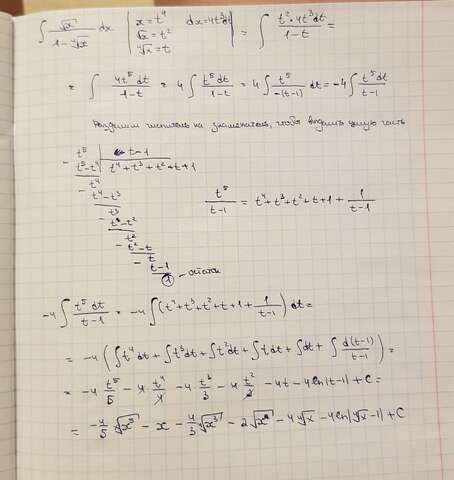 ∫ √x / (1 - ⁴√x) dx | x = t⁴ dx = 4t³dt | √x = t² | ⁴√x = t | = ∫ t² · 4t³dt / (1 - t) =
= ∫ 4t⁵ dt / (1 - t) = 4 ∫ t⁵ dt / (1 - t) = 4 ∫ t⁵ / (-(t-1)) dt = -4 ∫ t⁵ dt / (t-1)
Разделим числитель на знаменатель, чтобы выделить целую часть
- t⁵ | t - 1
t⁵ - t⁴ | t⁴ + t³ + t² + t + 1
- t⁴
t⁴ - t³
- t³
t³ - t²
- t²
t² - t
- t
t - 1
1 - остаток
t⁵ / (t-1) = t⁴ + t³ + t² + t + 1 + 1 / (t-1)
-4 ∫ t⁵ dt / (t-1) = -4 ∫ (t⁴ + t³ + t² + t + 1 + 1 / (t-1)) dt =
= -4 (∫ t⁴ dt + ∫ t³ dt + ∫ t² dt + ∫ t dt + ∫ dt + ∫ d(t-1) / (t-1)) =
= -4 t⁵/5 - 4 t⁴/4 - 4 t³/3 - 4 t²/2 - 4t - 4 ln|t-1| + C =
= -4/5 ⁴√x⁵ - x - 4/3 ⁴√x³ - 2 ⁴√x² - 4 ⁴√x - 4 ln|⁴√x - 1| + C